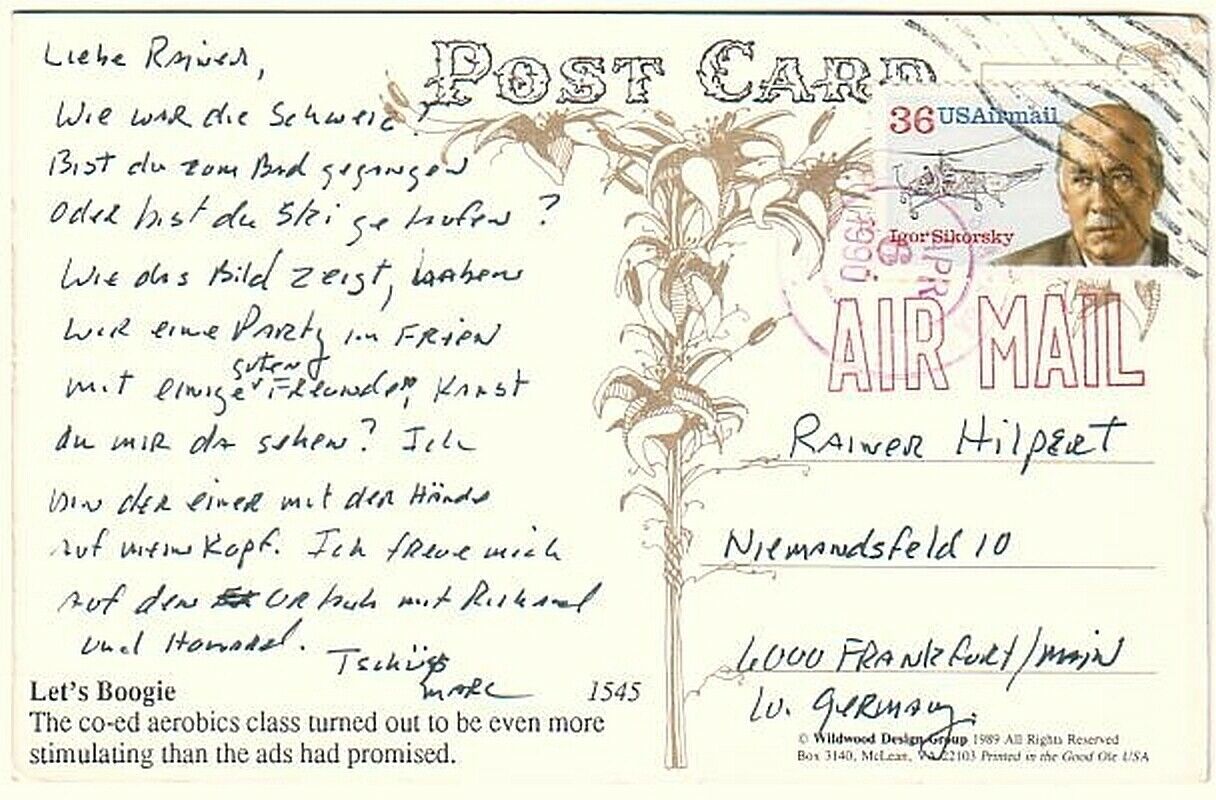 Liebe Rainer,
Wie war die Schweiz?
Bist du zum Bad gegangen
Oder bist du Ski gelaufen?
Wie das Bild zeigt, haben
wir eine Party im Frien
guten
mit einige Freunden, Kanst
du mir da sehen? Ich
bin der einer mit der Hände
auf mein Kopf. Ich freue mich
auf den Urlaub mit Richard
und Howard.
Tschüss
Marc
Let's Boogie 1545
The co-ed aerobics class turned out to be even more
stimulating than the ads had promised.
POST CARD
36 USAirmail
Igor Sikorsky
APR
6
1990
AIR MAIL
Rainer Hilpert
Niemandsfeld 10
6000 Frankfurt/Main
W. Germany.
© Wildwood Design Group 1989 All Rights Reserved
Box 3140, McLean, VA 22103 Printed in the Good Ole USA